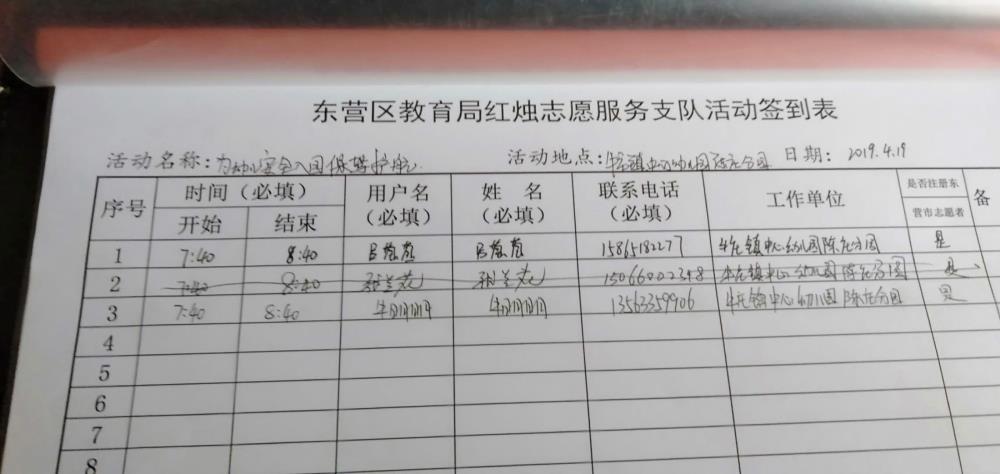 东营区教育局红烛志愿服务支队活动签到表
活动名称：为幼儿安全入园保驾护航 活动地点：牛庄镇中心幼儿园陈庄分园 日期：2019.4.19
序号 时间（必填） 用户名（必填） 姓 名（必填） 联系电话（必填） 工作单位 是否注册东营市志愿者 备
开始 结束
1 7:40 8:40 15865182277 牛庄镇中心幼儿园陈庄分园 是
2 7:40 8:40 张兰花 张兰花 15066002348 牛庄镇中心幼儿园陈庄分园 是
3 7:40 8:40 牛明明 牛明明 13563359906 牛庄镇中心幼儿园陈庄分园 是
4
5
6
7
8